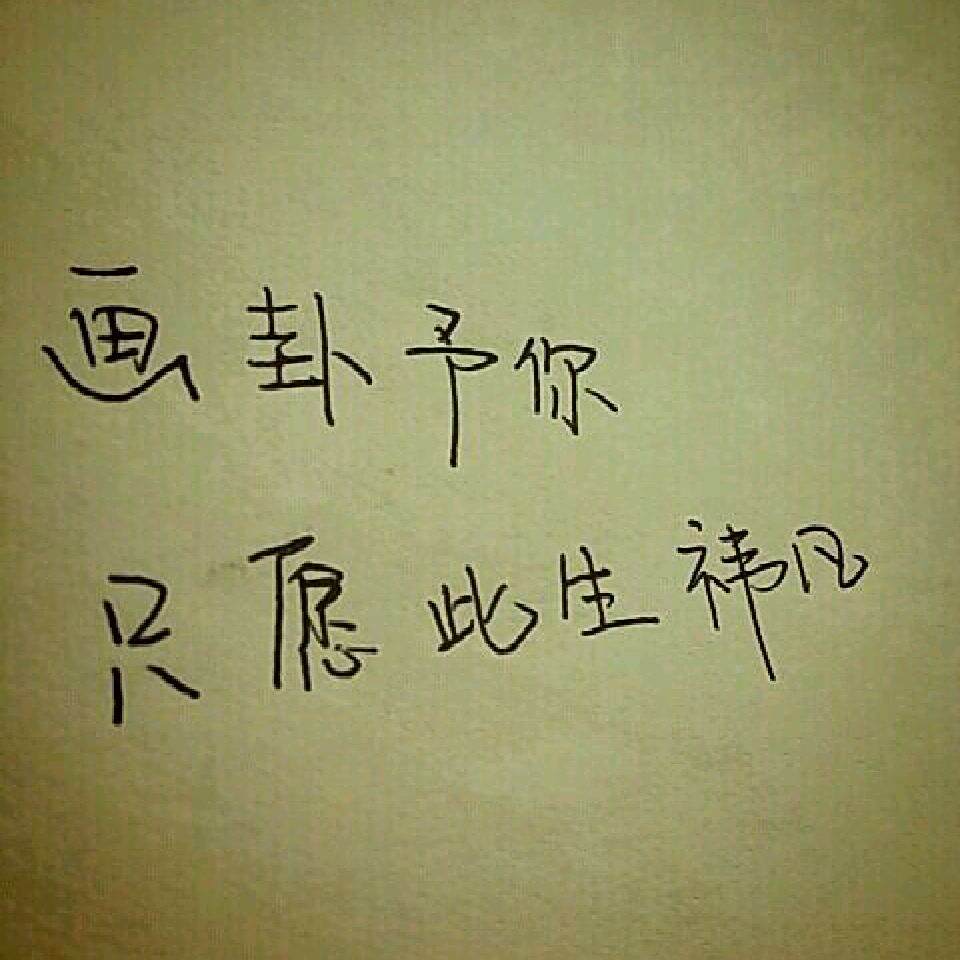 画卦予你
只愿此生祎凡